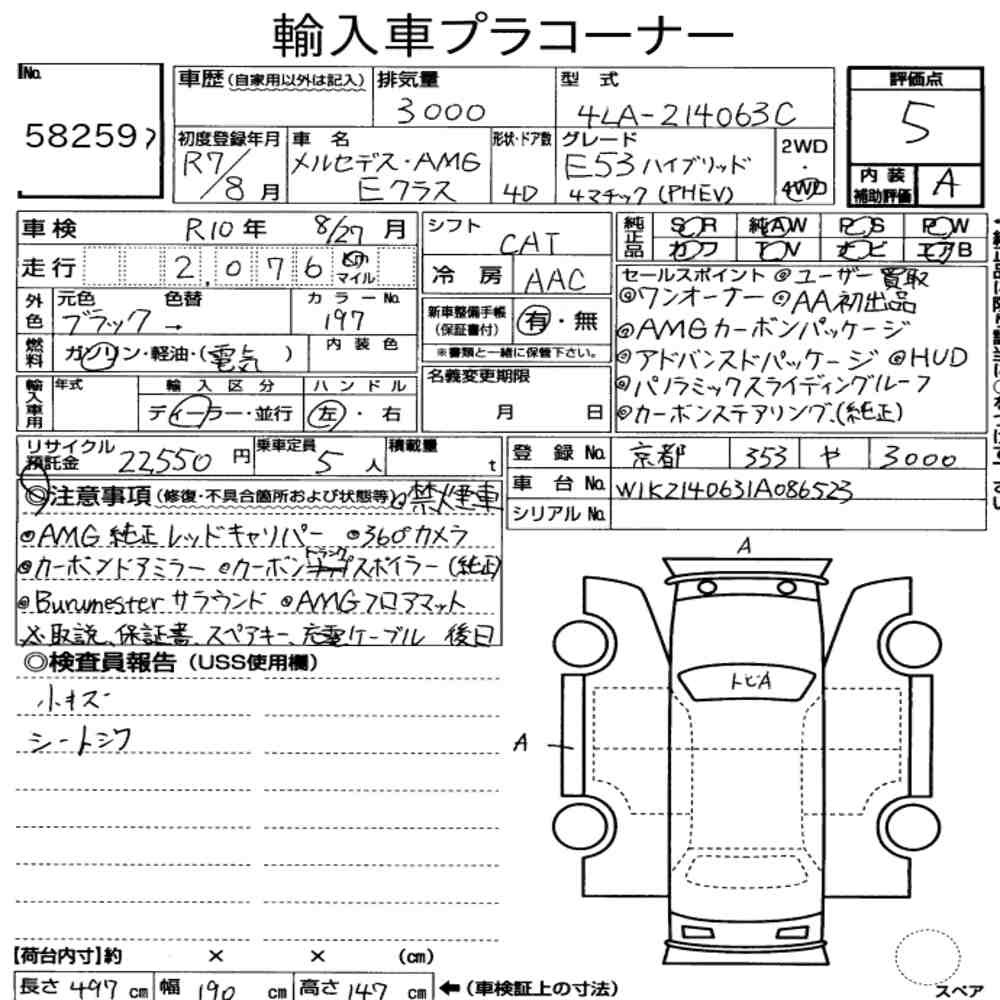 輸入車プラコーナー
No.
58259
車歴(自家用以外は記入)
排気量
3000
型 式
4LA-214063C
評価点
5
内装
補助評価
A
初度登録年月
R7/8月
車 名
メルセデス・AMG
Eクラス
形状・ドア数
4D
グレード
E53ハイブリッド
4マチック(PHEV)
2WD
・
4WD
車検
R10年 8/27月
走行
2,076
Km
マイル
外色
元色
色替
ブラック→
カラーNo.
197
燃料
ガソリン・軽油・(電気)
内装色
輸入車用
年式
輸入区分
ディーラー・並行
ハンドル
左・右
シフト
CAT
冷 房
AAC
新車整備手帳
(保証書付)
有・無
※書類と一緒に保管下さい。
名義変更期限
月 日
純正品
SR
純AW
PS
PW
カワ
TV
ナビ
エアB
セールスポイント ◎ユーザー買取
◎ワンオーナー ◎AA初出品
◎AMGカーボンパッケージ
◎アドバンスドパッケージ ◎HUD
◎パノラミックスライディングルーフ
◎カーボンステアリング(純正)
リサイクル
預託金
22,550円
乗車定員
5人
積載量
t
登 録 No.
京都 353 や 3000
車 台 No.
W1K2140631A086523
シリアルNo.
◎注意事項(修復・不具合箇所および状態等)◎禁煙車
◎AMG純正レッドキャリパー ◎360°カメラ
◎カーボンドアミラー ◎カーボントランクスポイラー(純正)
◎Burumesterサラウンド ◎AMGフロアマット
※取説、保証書、スペアキー、充電ケーブル 後日
◎検査員報告(USS使用欄)
小キズ
シートシワ
A
トビA
A
スペア
【荷台内寸】約 × × (cm)
長さ 497 cm
幅 190 cm
高さ 147 cm
←(車検証上の寸法)